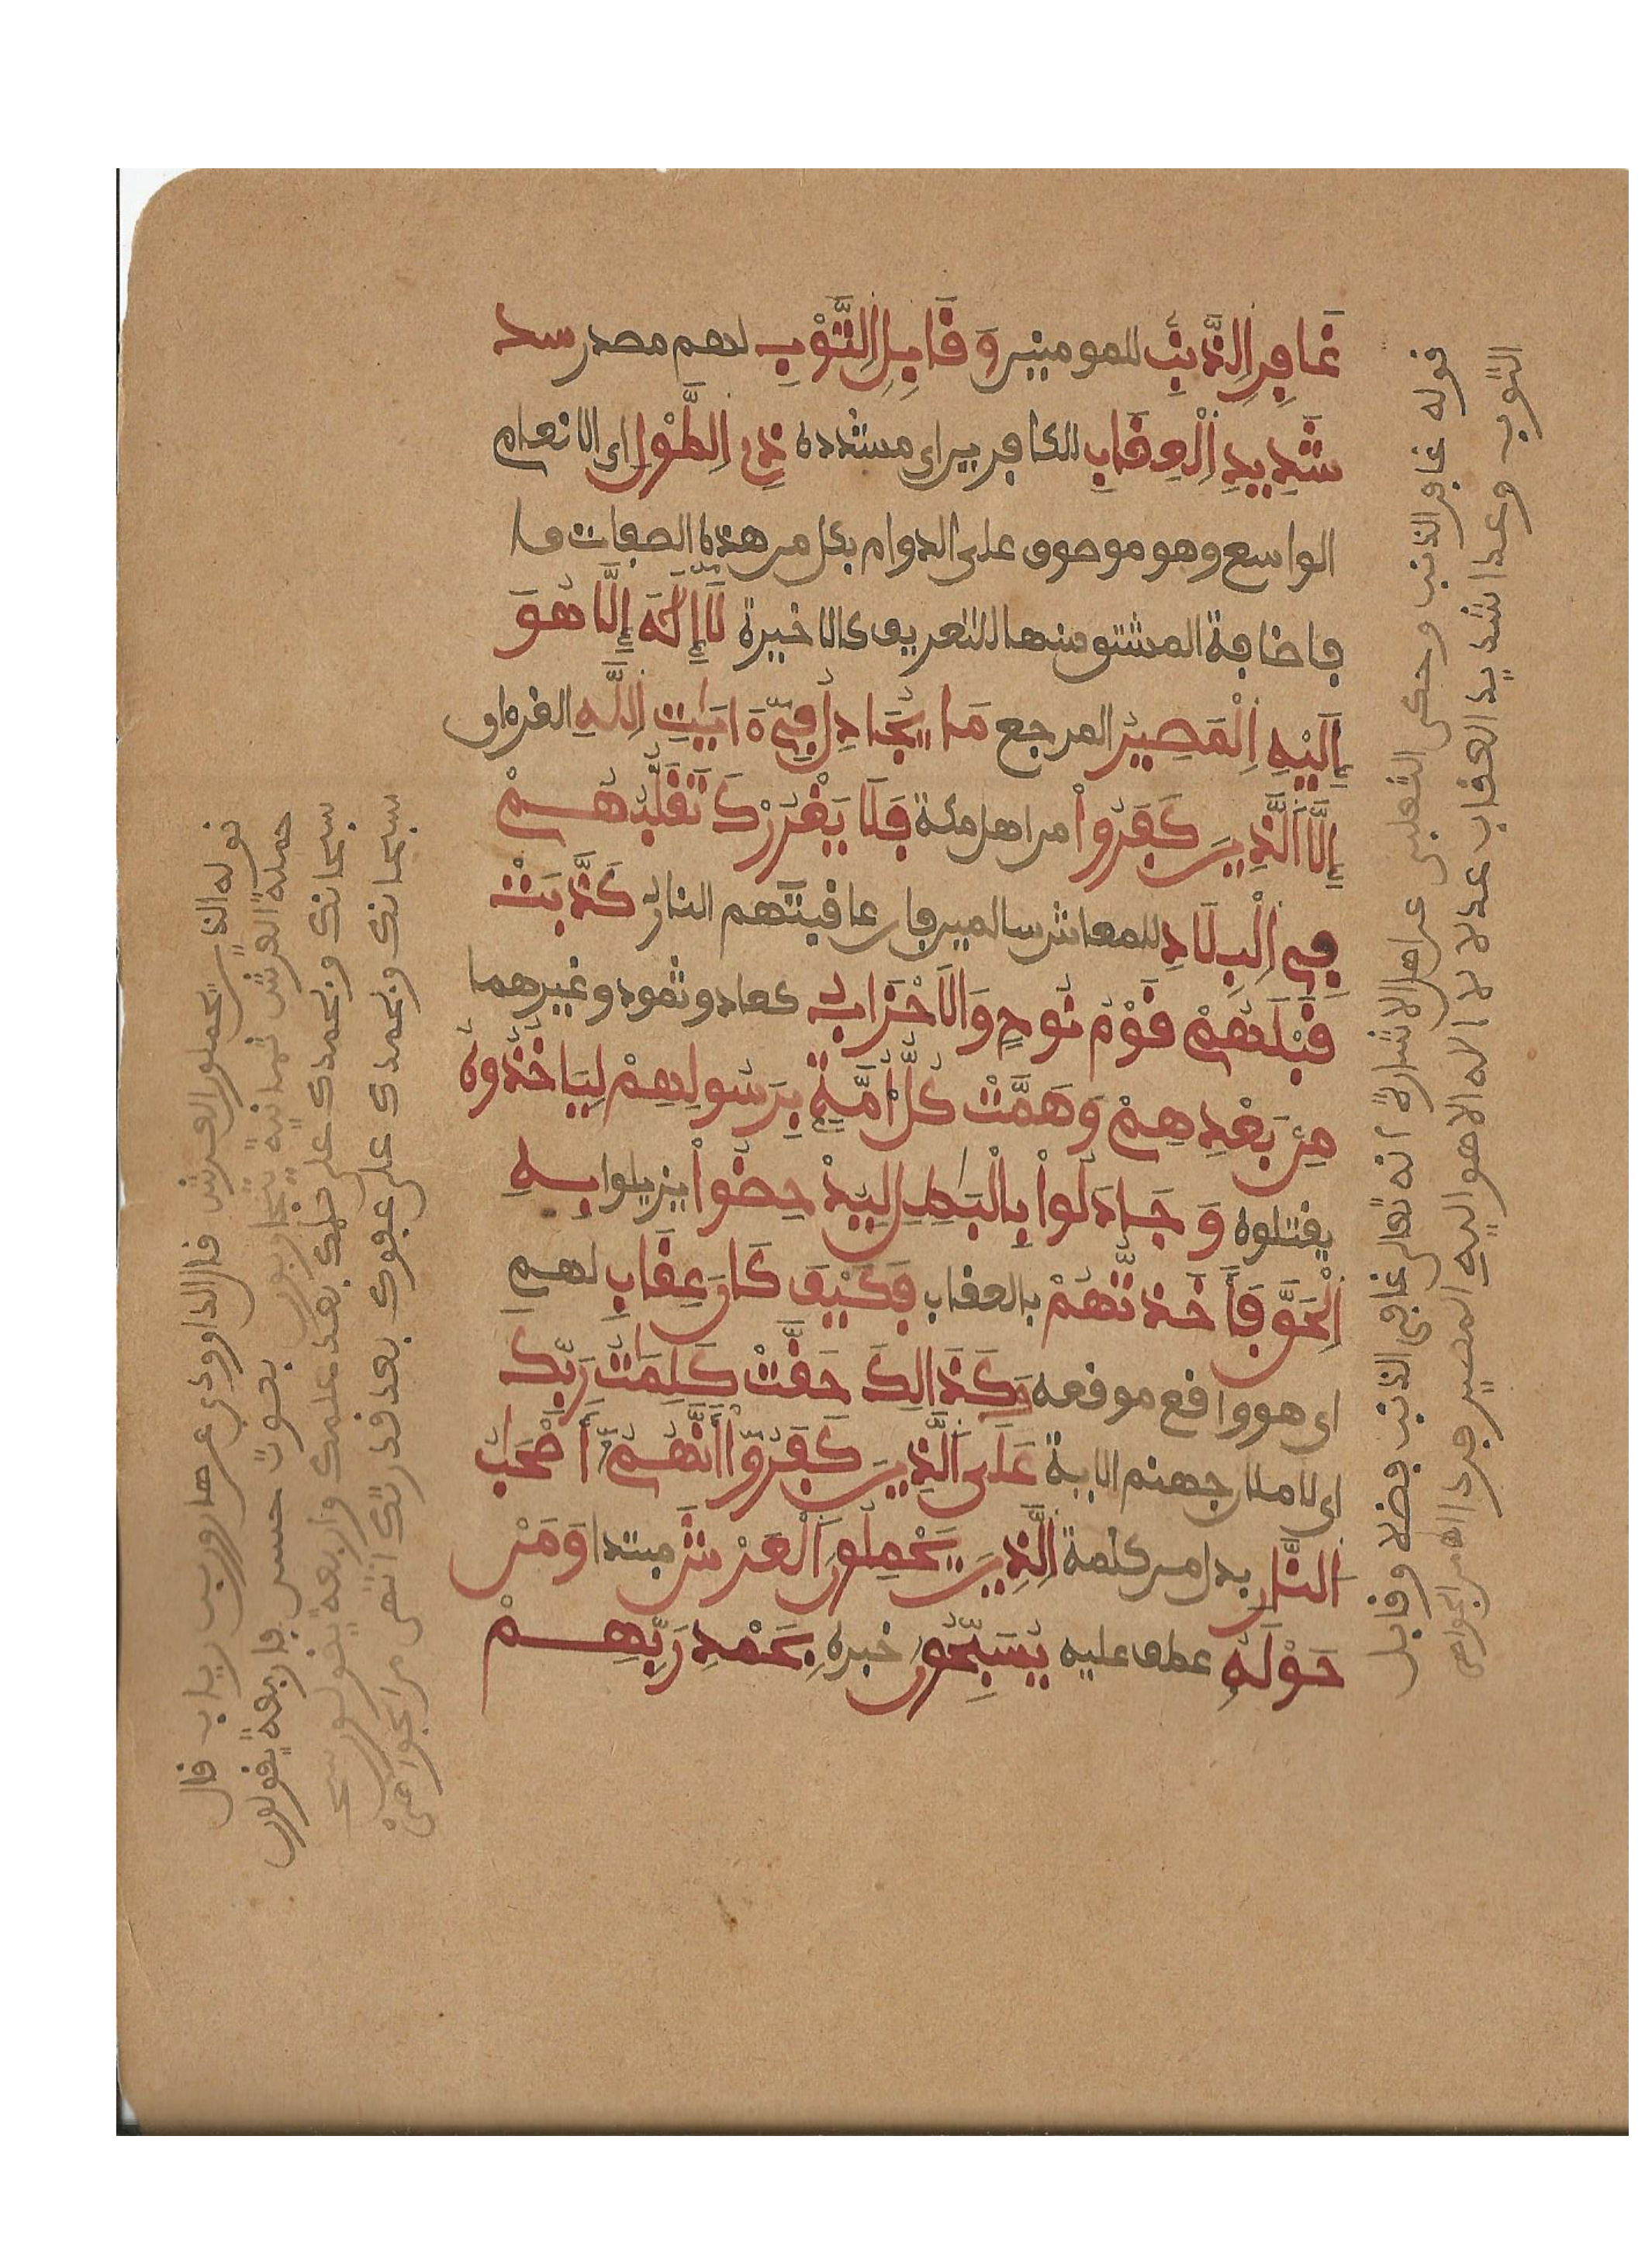 غَافِرِ اِلذَّنۢبِ للمومنين وَقَابِلِ اِلتَّوْبِ لهم مصدر سد
شَدِيدِ اِلْعِقَابِ للكافرين اى مشدده ذِى اِلطَّوْلِ اى الانعام
الواسع وهو موصوف على الدوام بكل من هذه الصفات فا
فاضافة المشتق منها للتعريف كالاخيرة لَآ إِلَٰهَ إِلَّا هُوَ
إِلَيْهِ اِلْمَصِيرُ المرجع مَا يُجَادِلُ فِىٓ ءَايَٰتِ اِللَّهِ القرءان
إِلَّا اَلذِينَ كَفَرُواْ من اهل مكة فَلَا يَغْرُرْكَ تَقَلُّبُهُمْ
فِى اِلْبِلَادِ للمعاش سالمين فان عاقبتهم النار كَذَّبَتْ
قَبْلَهُمْ قَوْمُ نُوحٍ وَالَاحْزَابُ كعاد وثمود وغيرهما
مِنۢ بَعْدِهِمْ وَهَمَّتْ كُلُّ أُمَّةٍۭ بِرَسُولِهِمْ لِيَاخُذُوهُ
يقتلوه وَجَادَلُواْ بِالْبَٰطِلِ لِيُدْحِضُواْ يزيلوا بِهِ
اِلْحَقَّ فَأَخَذتُّهُمْ بالعقاب فَكَيْفَ كَانَ عِقَابِ لهم ا
اى هو واقع موقعه وَكَذَالِكَ حَقَّتْ كَلِمَٰتُ رَبِّكَ
اى لاملان جهنم الاية عَلَى اَلذِينَ كَفَرُوٓاْ أَنَّهُمُۥٓ أَصْحَٰبُ
اُلنَّارِ بدل من كلمة اِلذِينَ يَحْمِلُونَ اَلْعَرْشَ مبتدا وَمَنْ
حَوْلَهُۥ عطف عليه يُسَبِّحُونَ خبره بِحَمْدِ رَبِّهِمْ
قوله غافر الذنب وحكى الثعلبى عن اهل الاشارة انه تعالى غافر الذنب فضلا وقابل
التوب وعدا شديد العقاب عدلا لا اله الا هو اليه المصير فردا اهـ من الجواهر
قوله الذين يحملون العرش قال الداودى عن هارون بن رياب قال
حملة العرش ثمانية يتجاوبون بصوت حسن فاربعة يقولون
سبحانك وبحمدك على حلمك بعد علمك واربعة يقولون سبحـ
سبحانك وبحمدك على عفوك بعد قدرتك انتهى من الجواهر